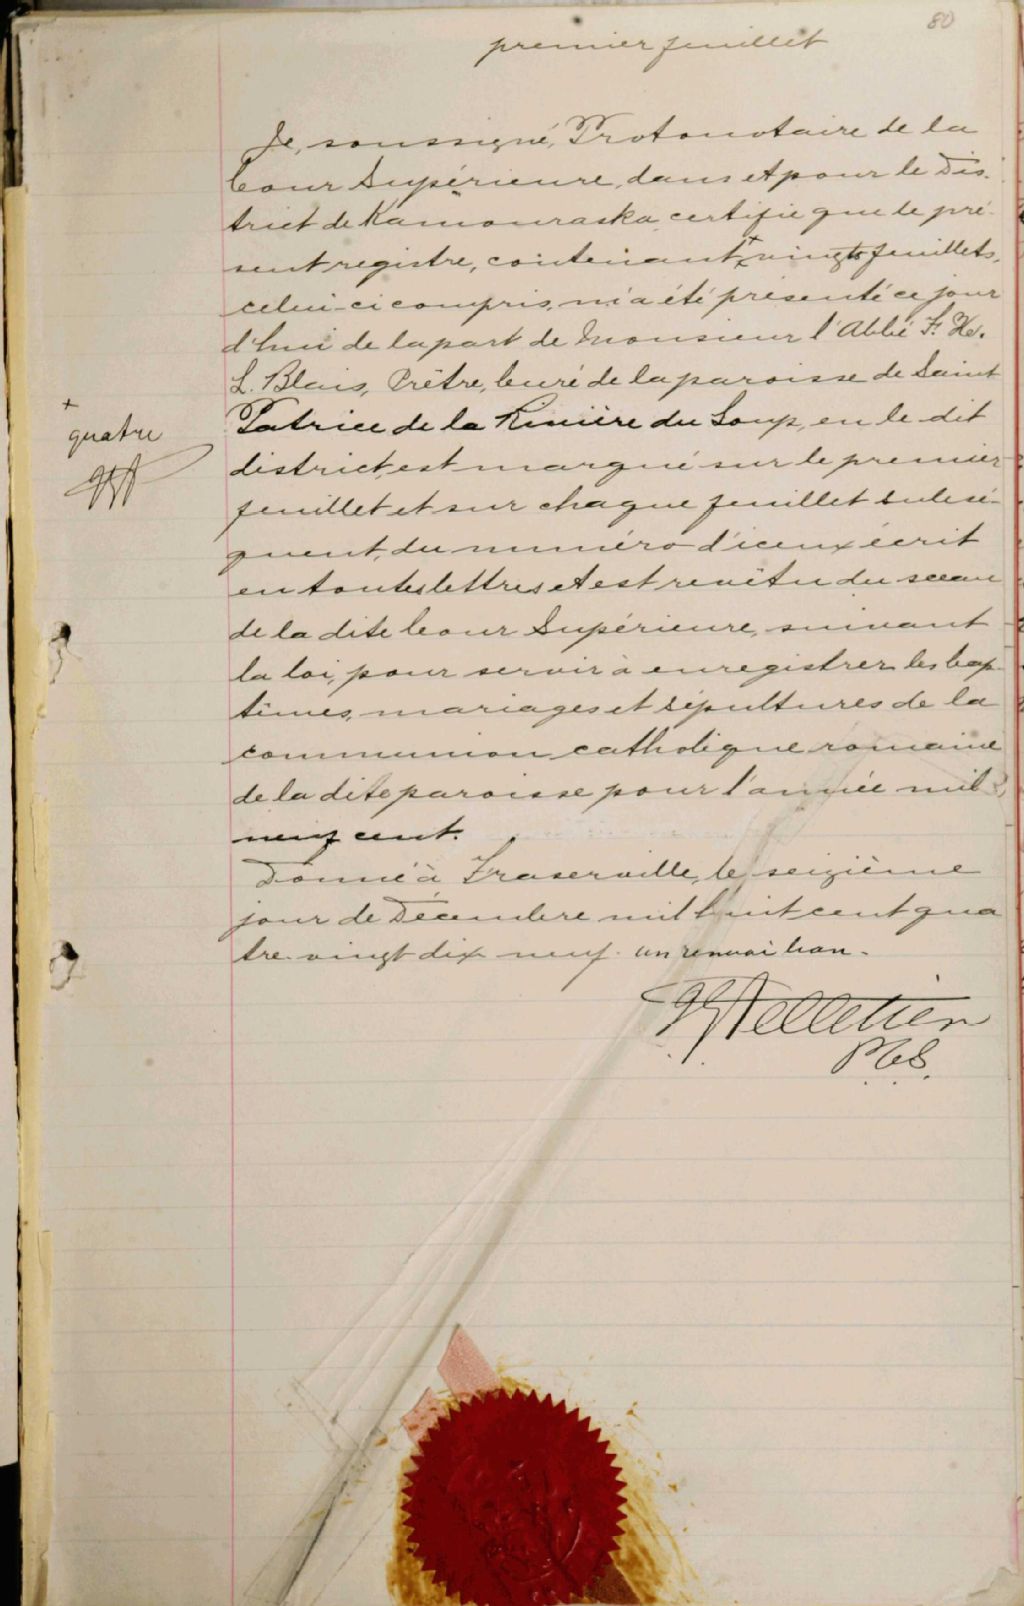 80
premier feuillet
Je, soussigné, Protonotaire de la
Cour Supérieure, dans et pour le Dis-
trict de Kamouraska, certifie que le pré-
sent registre, contenant + vingt feuillets,
celui-ci compris, m'a été présenté ce jour
d'hui de la part de Monsieur l'Abbé F. X.
L. Blais, Prêtre, Curé de la paroisse de Saint
Patrice de la Rivière du Loup, en le dit
district, est marqué sur le premier
feuillet et sur chaque feuillet subsé-
quent, du numéro d'iceux écrit
en toutes lettres et est revêtu du sceau
de la dite Cour Supérieure, suivant
la loi, pour servir à enregistrer les bap-
têmes, mariages et sépultures de la
communion catholique romaine
de la dite paroisse pour l'année mil
neuf cent.
Donné à Fraserville, le seizième
jour de Décembre mil huit cent qua
tre-vingt dix neuf. un renvoi bon.
Pelletier
P.C.S.
+
quatre